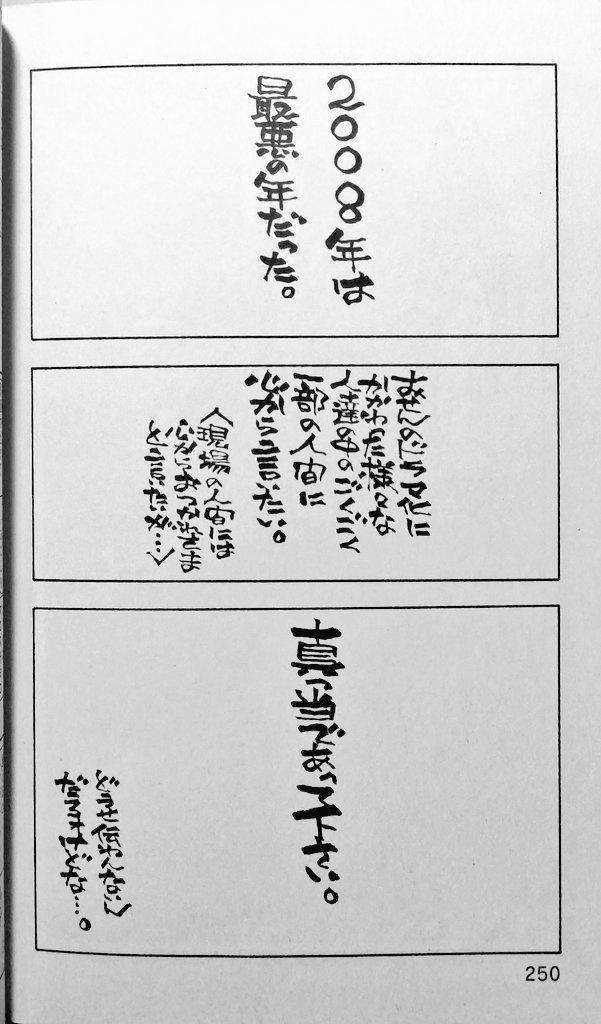 2008年は
最悪の年だった。
おせんのドラマ化に
かかわった様々な
人達の中のごくごく
一部の人間に
心から言いたい。
〈現場の人間には
心からおつかれさま
と言いたいが…〉
真っ当であって下さい。
どうせ伝わんない
だろうけどな…。
250